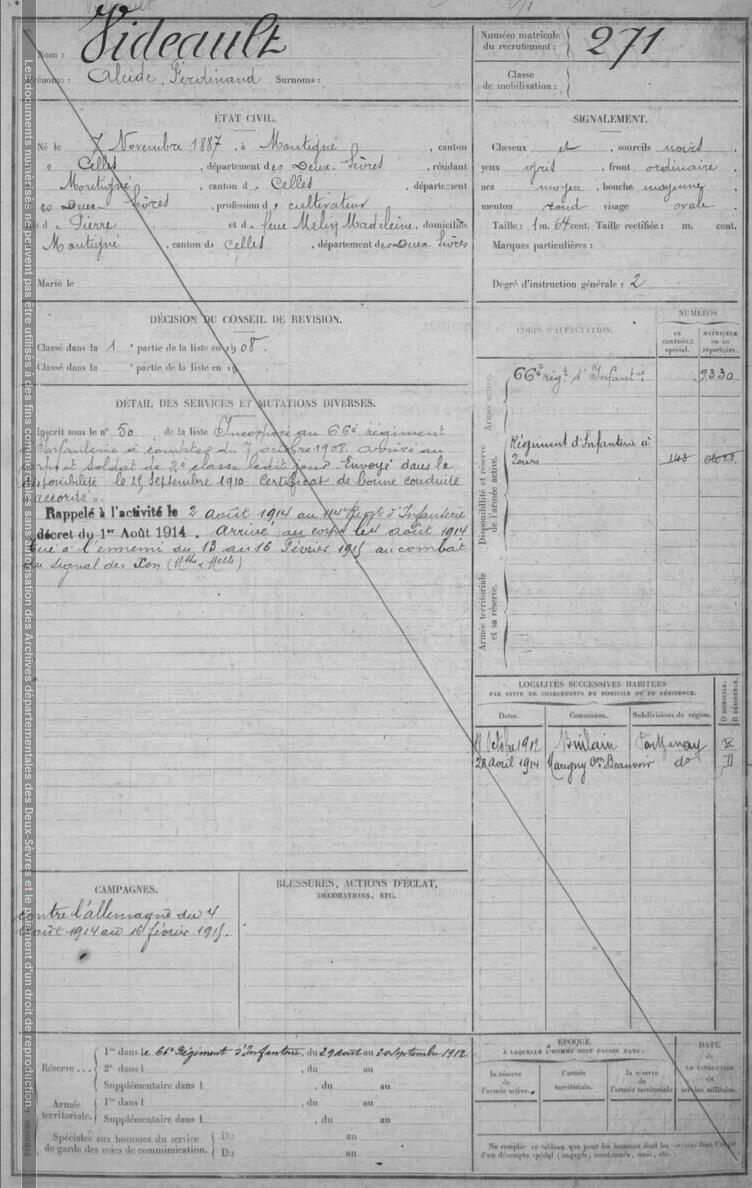 Nom : Videault
Prénoms : Alcide, Ferdinand Surnoms :
Numéro matricule du recrutement : 271
Classe de mobilisation :
ÉTAT CIVIL.
Né le 7 Novembre 1887, à Montigné, canton
de Celles, département des Deux-Sèvres, résidant
Montigné, canton de Celles, département
des Deux-Sèvres, profession de cultivateur
fils de Pierre et de feue Melin Madeleine, domiciliés
Montigné, canton de Celles, département des Deux-Sèvres
Marié le
SIGNALEMENT.
Cheveux et, sourcils noirs,
yeux gris, front ordinaire,
nez moyen, bouche moyenne
menton rond visage ovale.
Taille : 1 m. 64 cent. Taille rectifiée : m. cent.
Marques particulières :
Degré d'instruction générale : 2
DÉCISION DU CONSEIL DE REVISION.
Classé dans la 1e partie de la liste en 1908.
Classé dans la e partie de la liste en 19
DÉTAIL DES SERVICES ET MUTATIONS DIVERSES.
Inscrit sous le n° 50 de la liste Incorporé au 66e régiment
Infanterie à compter du 7 octobre 1908, arrivé au
corps et soldat de 2e classe ledit jour. Envoyé dans la
disponibilité le 25 Septembre 1910. Certificat de bonne conduite
"accordé".
Rappelé à l'activité le 2 août 1914 au 114e Régt d'Infanterie
décret du 1er Août 1914. Arrivé au corps le 4 août 1914
tué à l'ennemi du 13 au 16 Février 1915 au combat
du Signal de Xon (Mthe & Melle)
CORPS D'AFFECTATION.
NUMÉROS
au contrôle spécial.
matricule ou au répertoire.
Armée active.
66e régt d'Infanterie 9330
Disponibilité et réserve de l'armée active.
Régiment d'Infanterie à
Tours 148
Armée territoriale et sa réserve.
LOCALITÉS SUCCESSIVES HABITÉES
PAR SUITE DE CHANGEMENTS DE DOMICILE OU DE RÉSIDENCE.
Dates. Communes. Subdivisions de région. D DOMICILE. R RÉSIDENCE.
Octobre 1912 Brulain Parthenay R
28 avril 1914 Marigny Con Beauvoir do D
CAMPAGNES.
Contre l'allemagne du 4
août 1914 au 16 février 1915.
BLESSURES, ACTIONS D'ÉCLAT,
DÉCORATIONS, ETC.
Réserve ... 1re dans le 66e Régiment d'Infanterie, du 29 août au 20 septembre 1912
2e dans l , du au
Supplémentaire dans l , du au
Armée territoriale. 1re dans l , du au
Supplémentaire dans l , du au
Spéciales aux hommes du service de garde des voies de communication. Du au
Du au
ÉPOQUE
À LAQUELLE L'HOMME DOIT PASSER DANS :
la réserve de l'armée active.
l'armée territoriale.
la réserve de l'armée territoriale
DATE de LA LIBÉRATION du service militaire.
Ne remplir ce tableau que pour les hommes dont les services font l'objet
d'un décompte spécial (engagés, condamnés, omis, etc.
Les documents numérisés ne peuvent pas être utilisés à des fins commerciales sans autorisation des Archives départementales des Deux-Sèvres et le paiement d'un droit de reproduction.